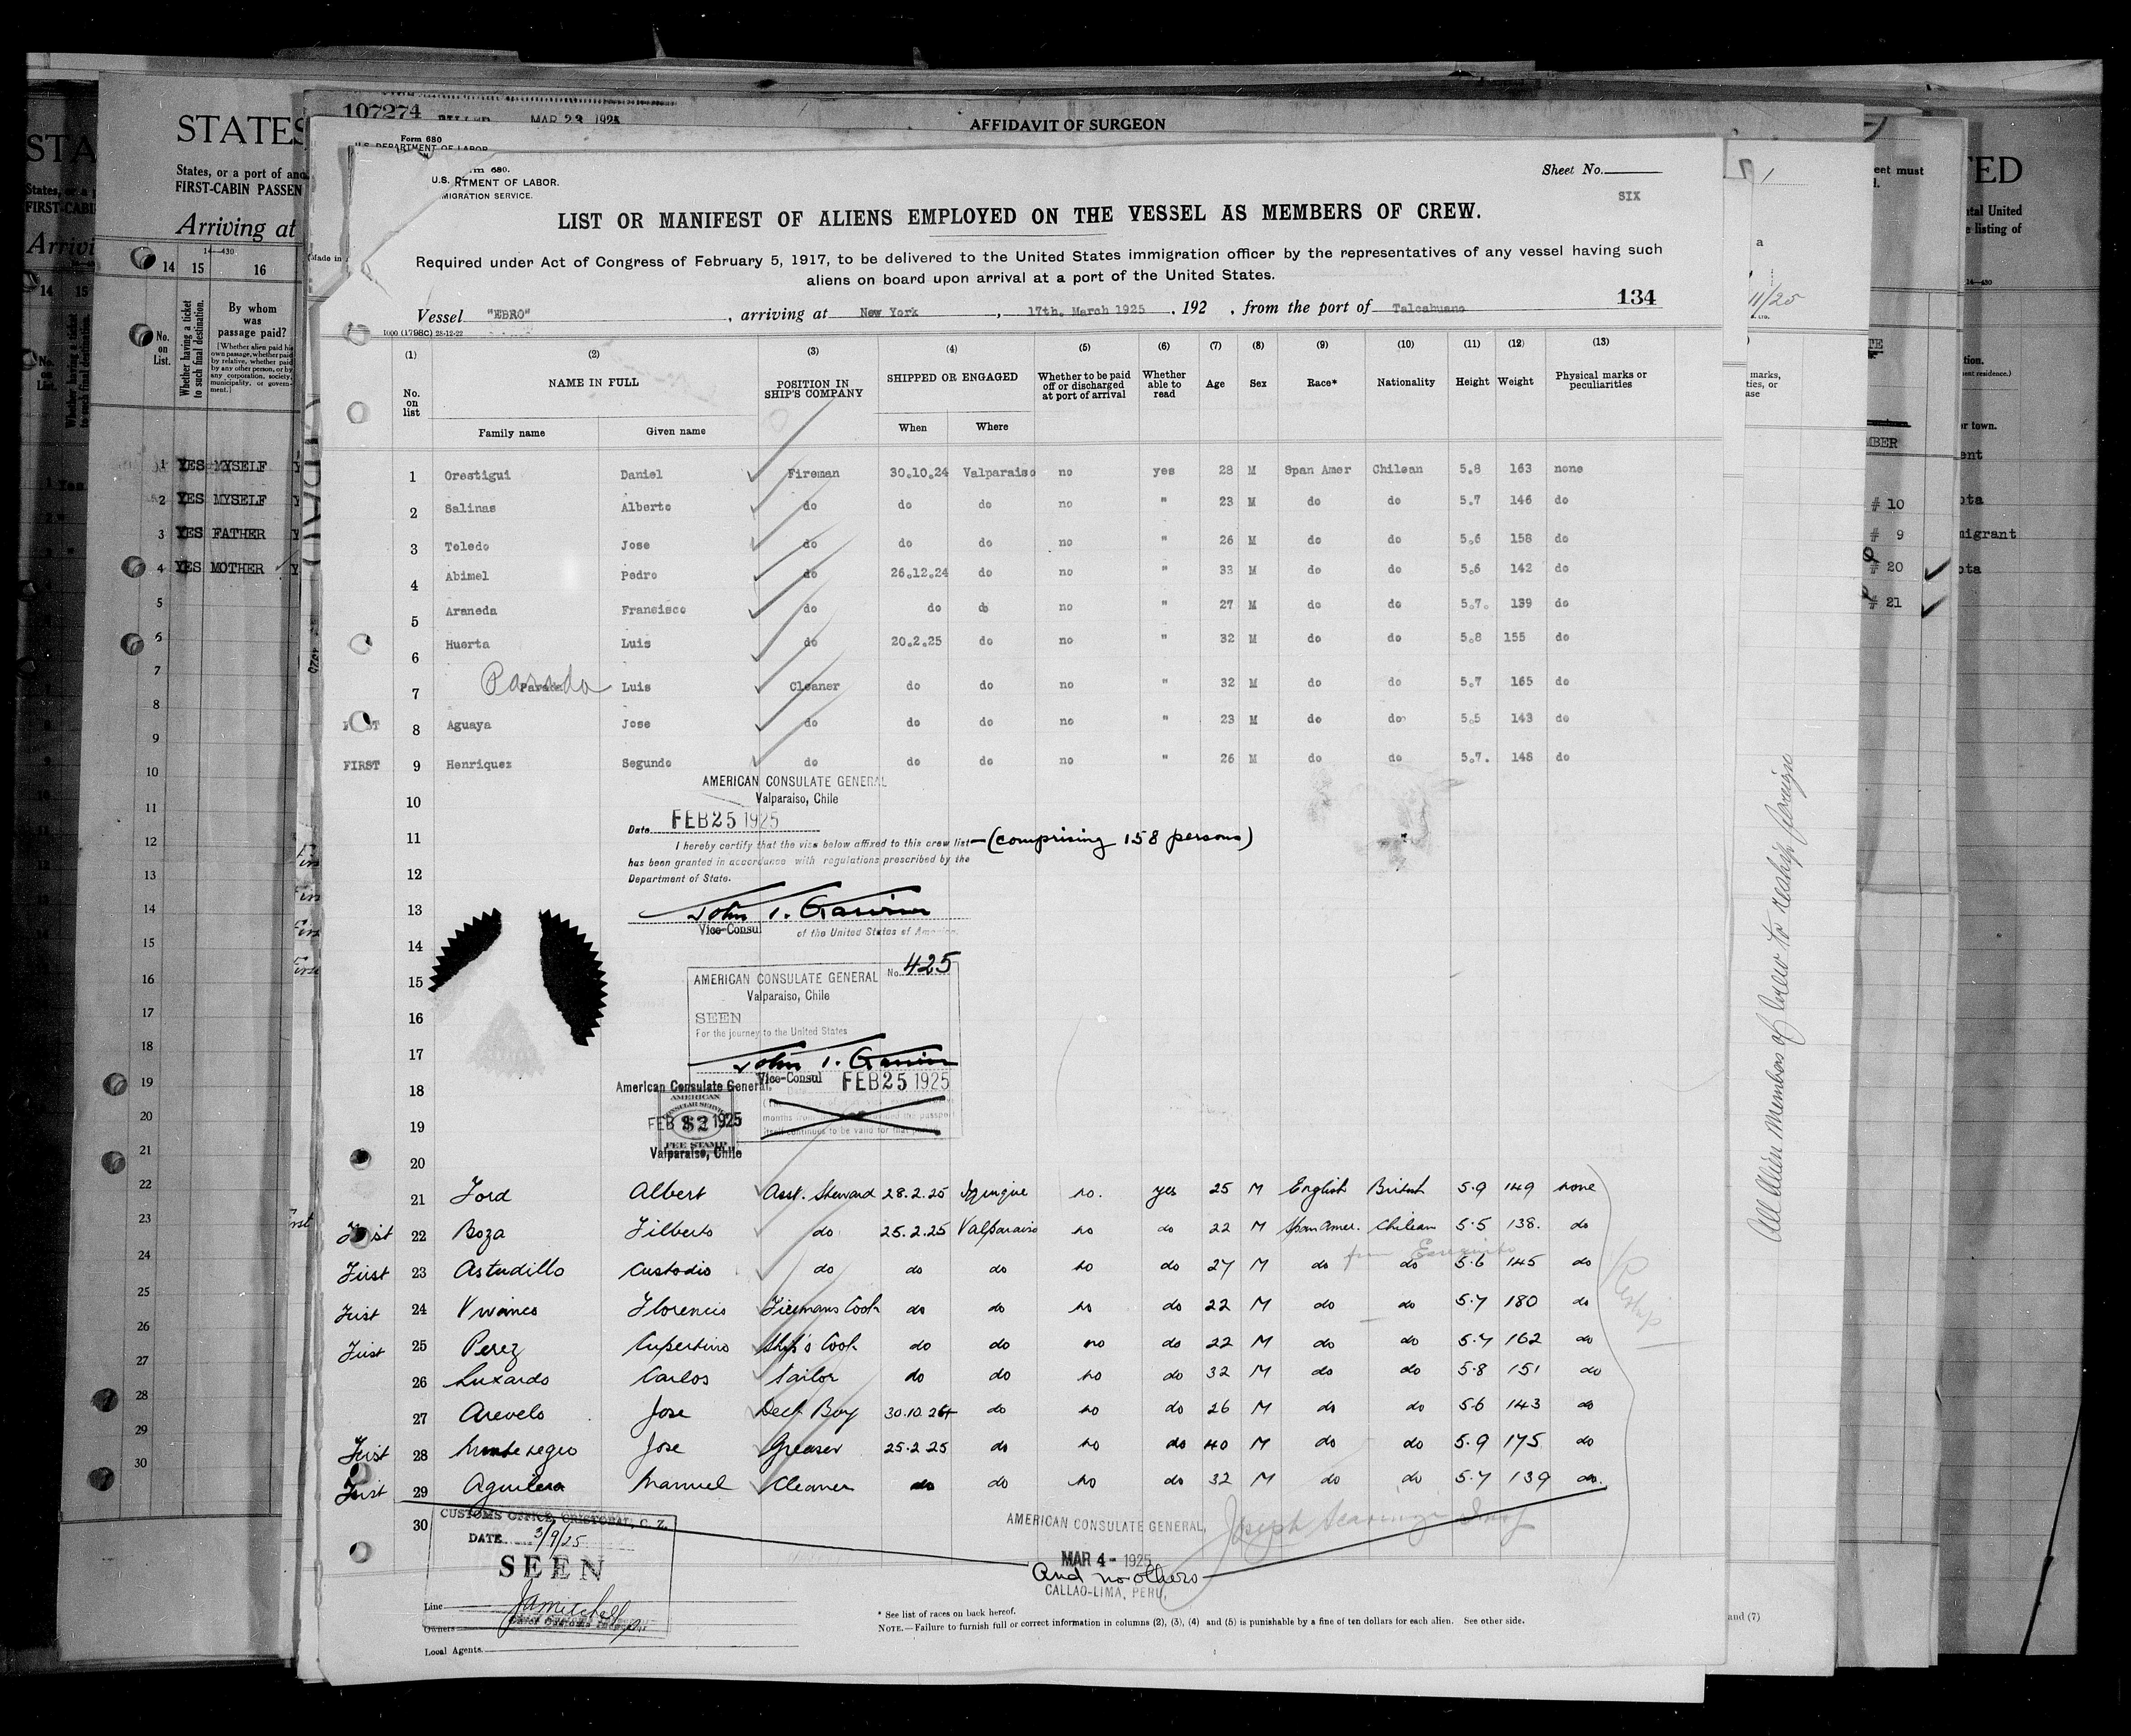 107274
FILLED MAR 23 1925
AFFIDAVIT OF SURGEON
Form 680
U.S. DEPARTMENT OF LABOR
STATES
States, or a port of
FIRST-CABIN PASSEN
Arriving at
14 15 16
Whether having a ticket to such final destination.
By whom was passage paid?
No. on List.
1 YES MYSELF
2 YES MYSELF
3 YES FATHER
4 YES MOTHER
5
6
7
8
9
10
11
12
13
14
15
16
17
18
19
20
21
22
23
24
25
26
27
28
29
30
680.
U.S. RTMENT OF LABOR.
MIGRATION SERVICE.
Sheet No.
SIX
LIST OR MANIFEST OF ALIENS EMPLOYED ON THE VESSEL AS MEMBERS OF CREW.
Required under Act of Congress of February 5, 1917, to be delivered to the United States immigration officer by the representatives of any vessel having such
aliens on board upon arrival at a port of the United States.
134
Vessel "EBRO", arriving at New York, 17th. March 1925, 192 , from the port of Talcahuano
1000 (1798C) 28-12-22
(1) (2) (3) (4) (5) (6) (7) (8) (9) (10) (11) (12) (13)
No. on list NAME IN FULL POSITION IN SHIP'S COMPANY SHIPPED OR ENGAGED Whether to be paid off or discharged at port of arrival Whether able to read Age Sex Race* Nationality Height Weight Physical marks or peculiarities
Family name Given name When Where
1 Orestigui Daniel Fireman 30.10.24 Valparaiso no yes 28 M Span Amer Chilean 5.8 163 none
2 Salinas Alberto do do do no " 23 M do do 5.7 146 do
3 Toledo Jose do do do no " 26 M do do 5.6 158 do
4 Abimel Pedro do 26.12.24 do no " 33 M do do 5.6 142 do
5 Araneda Fransisco do do do no " 27 M do do 5.7. 139 do
6 Huerta Luis do 20.2.25 do no " 32 M do do 5.8 155 do
7 Parada Luis Cleaner do do no " 32 M do do 5.7 165 do
8 Aguaya Jose do do do no " 23 M do do 5.5 143 do
FIRST 9 Henriquez Segundo do do do no " 26 M do do 5.7. 148 do
10
11
12
13
14
15
16
17
18
19
20
AMERICAN CONSULATE GENERAL
Valparaiso, Chile
Date FEB 25 1925
I hereby certify that the visa below affixed to this crew list - (comprising 158 persons)
has been granted in accordance with regulations prescribed by the
Department of State.
Vice-Consul of the United States of America.
AMERICAN CONSULATE GENERAL No. 425
Valparaiso, Chile
SEEN
For the journey to the United States
Vice-Consul FEB 25 1925
American Consulate General.
AMERICAN
CONSULAR SERVICE
FEB $2 1925
FEE STAMP
Valparaiso, Chile
21 Ford Albert Asst. Steward 28.2.25 Iquique no. yes 25 M English British 5.9 149 none
First 22 Boza Filberto do 25.2.25 Valparaiso no do 22 M Span Amer. Chilean 5.5 138. do
First 23 Astudillo Custodio do do do no do 27 M do do 5.6 145 do
First 24 Vivanco Florencio Firemans Cook do do no do 22 M do do 5.7 180 do
First 25 Perez Cupertino Ship's Cook do do no do 22 M do do 5.7 162 do
26 Luxardo Carlos Sailor do do no do 32 M do do 5.8 151 do
27 Arevelo Jose Deck Boy 30.10.24 do no do 26 M do do 5.6 143 do
First 28 Montenegro Jose Greaser 25.2.25 do no do 40 M do do 5.9 175 do
First 29 Aguilera Manuel Cleaner do do no do 32 M do do 5.7 139 do.
30
Reship
CUSTOMS OFFICE, CRISTOBAL, C. Z.
DATE 3/9/25
SEEN
AMERICAN CONSULATE GENERAL,
MAR 4 - 1925
And no others
CALLAO-LIMA, PERU,
Line
Owners
Local Agents.
* See list of races on back hereof.
NOTE.—Failure to furnish full or correct information in columns (2), (3), (4) and (5) is punishable by a fine of ten dollars for each alien. See other side.
All Alien Members of Crew to reship foreign
11/25
marks,
and (7)
# 10
# 9
# 20
# 21